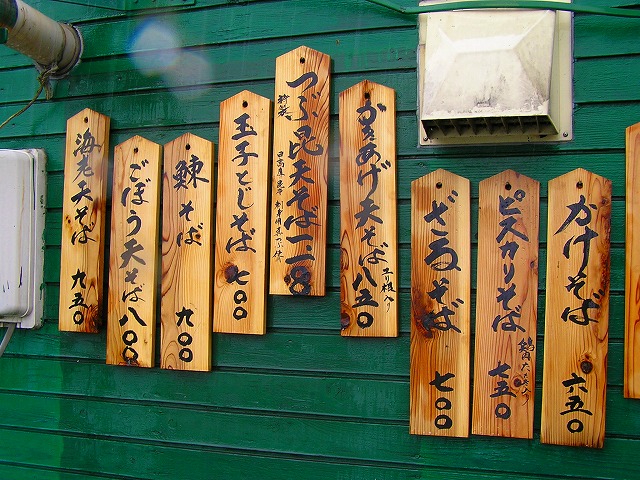 かけそば 六五〇
ピスカリそば 七五〇
ざるそば 七〇〇
かきあげ天そば 八五〇
つぶ昆天そば 一一〇〇
玉子とじそば 七〇〇
鰊そば 九〇〇
ごぼう天そば 八〇〇
海老天そば 九五〇